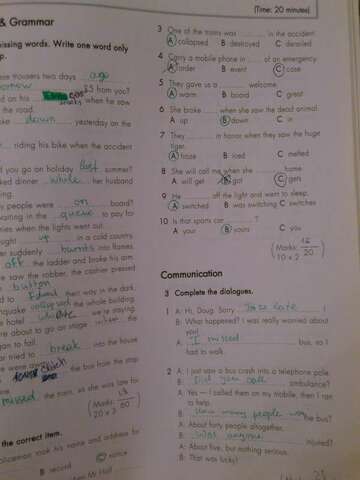 (Time: 20 minutes)
& Grammar
issing words. Write one word only
ose trousers two days ago
orrow £5 from you?
d on his when he saw
the road.
oke down yesterday on the
riding his bike when the accident
you go on holiday last summer?
ked dinner while her husband
ing.
y people were on board?
aiting in the queue to pay for
ies when the lights went out.
ught up in a cold country.
er suddenly bursts into flames.
off the ladder and broke his arm.
e saw the robber, the cashier pressed
button
d to find their way in the dark.
hquake collapsed the whole building.
e hotel we're staying.
re about to go on stage the
ar tried to break into the house
the bus from the stop
missed the train, so she was late for
(Marks: /60)
20 x 3
the correct item.
oliceman took his name and address for
B record C notice
3 One of the trains was in the accident.
A collapsed B destroyed C derailed
4 Carry a mobile phone in of an emergency.
A order B event C case
5 They gave us a welcome.
A warm B brood C great
6 She broke when she saw the dead animal.
A up B down C in
7 They in horror when they saw the huge
tiger.
A froze B iced C melted
8 She will call me when she home.
A will get B got C gets
9 He off the light and went to sleep.
A switched B was switching C switches
10 Is that sports car ?
A your B yours C you
(Marks: /20)
10 x 2
Communication
3 Complete the dialogues.
1 A: Hi, Doug. Sorry late !
B: What happened? I was really worried about
you!
A: I missed bus, so I
had to walk.
2 A: I just saw a bus crash into a telephone pole.
B: Did you call ambulance?
A: Yes – I called them on my mobile, then I ran
to help.
B: How many people the bus?
A: About forty people altogether.
B: Was anyone injured?
A: About five, but nothing serious.
B: That was lucky!